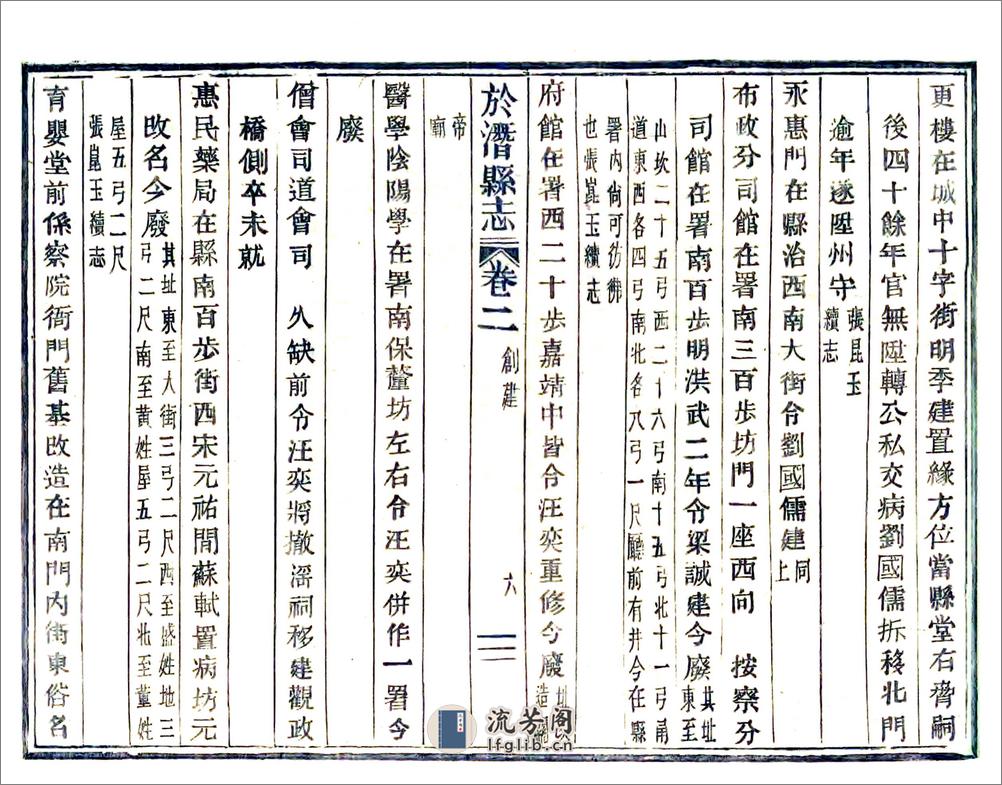 更樓在城中十字街明季建置緣方位當縣堂右脅嗣
後四十餘年官無陞轉公私交病劉國儒拆移北門
逾年遂陞州守張昆玉
續志
永惠門在縣治西南大街令劉國儒建同
上
布政分司館在署南三百步坊門一座西向 按察分
司館在署南百步明洪武二年令梁誠建今廢其址
東至
山坎二十五弓西二十六弓南十五弓北十一弓甬
道東西各四弓南北各八弓一尺廳前有井今在縣
署內尙可彷彿
也張崑玉續志
府館在署西二十步嘉靖中皆令汪奕重修今廢址
造
於潛縣志 卷二 創建 六
帝
廟
醫學陰陽學在署南保釐坊左右令汪奕併作一署今
廢
僧會司道會司 久缺前令汪奕將撤淫祠移建觀政
橋側卒未就
惠民藥局在縣南百步街西宋元祐間蘇軾置病坊元
改名今廢其址東至大街三弓二尺西至盛姓地三
弓二尺南至黃姓屋五弓二尺北至董姓
屋五弓二尺
張崑玉續志
育嬰堂前係察院衙門舊基改造在南門內街東俗名
流芳閣
lfglib.cn